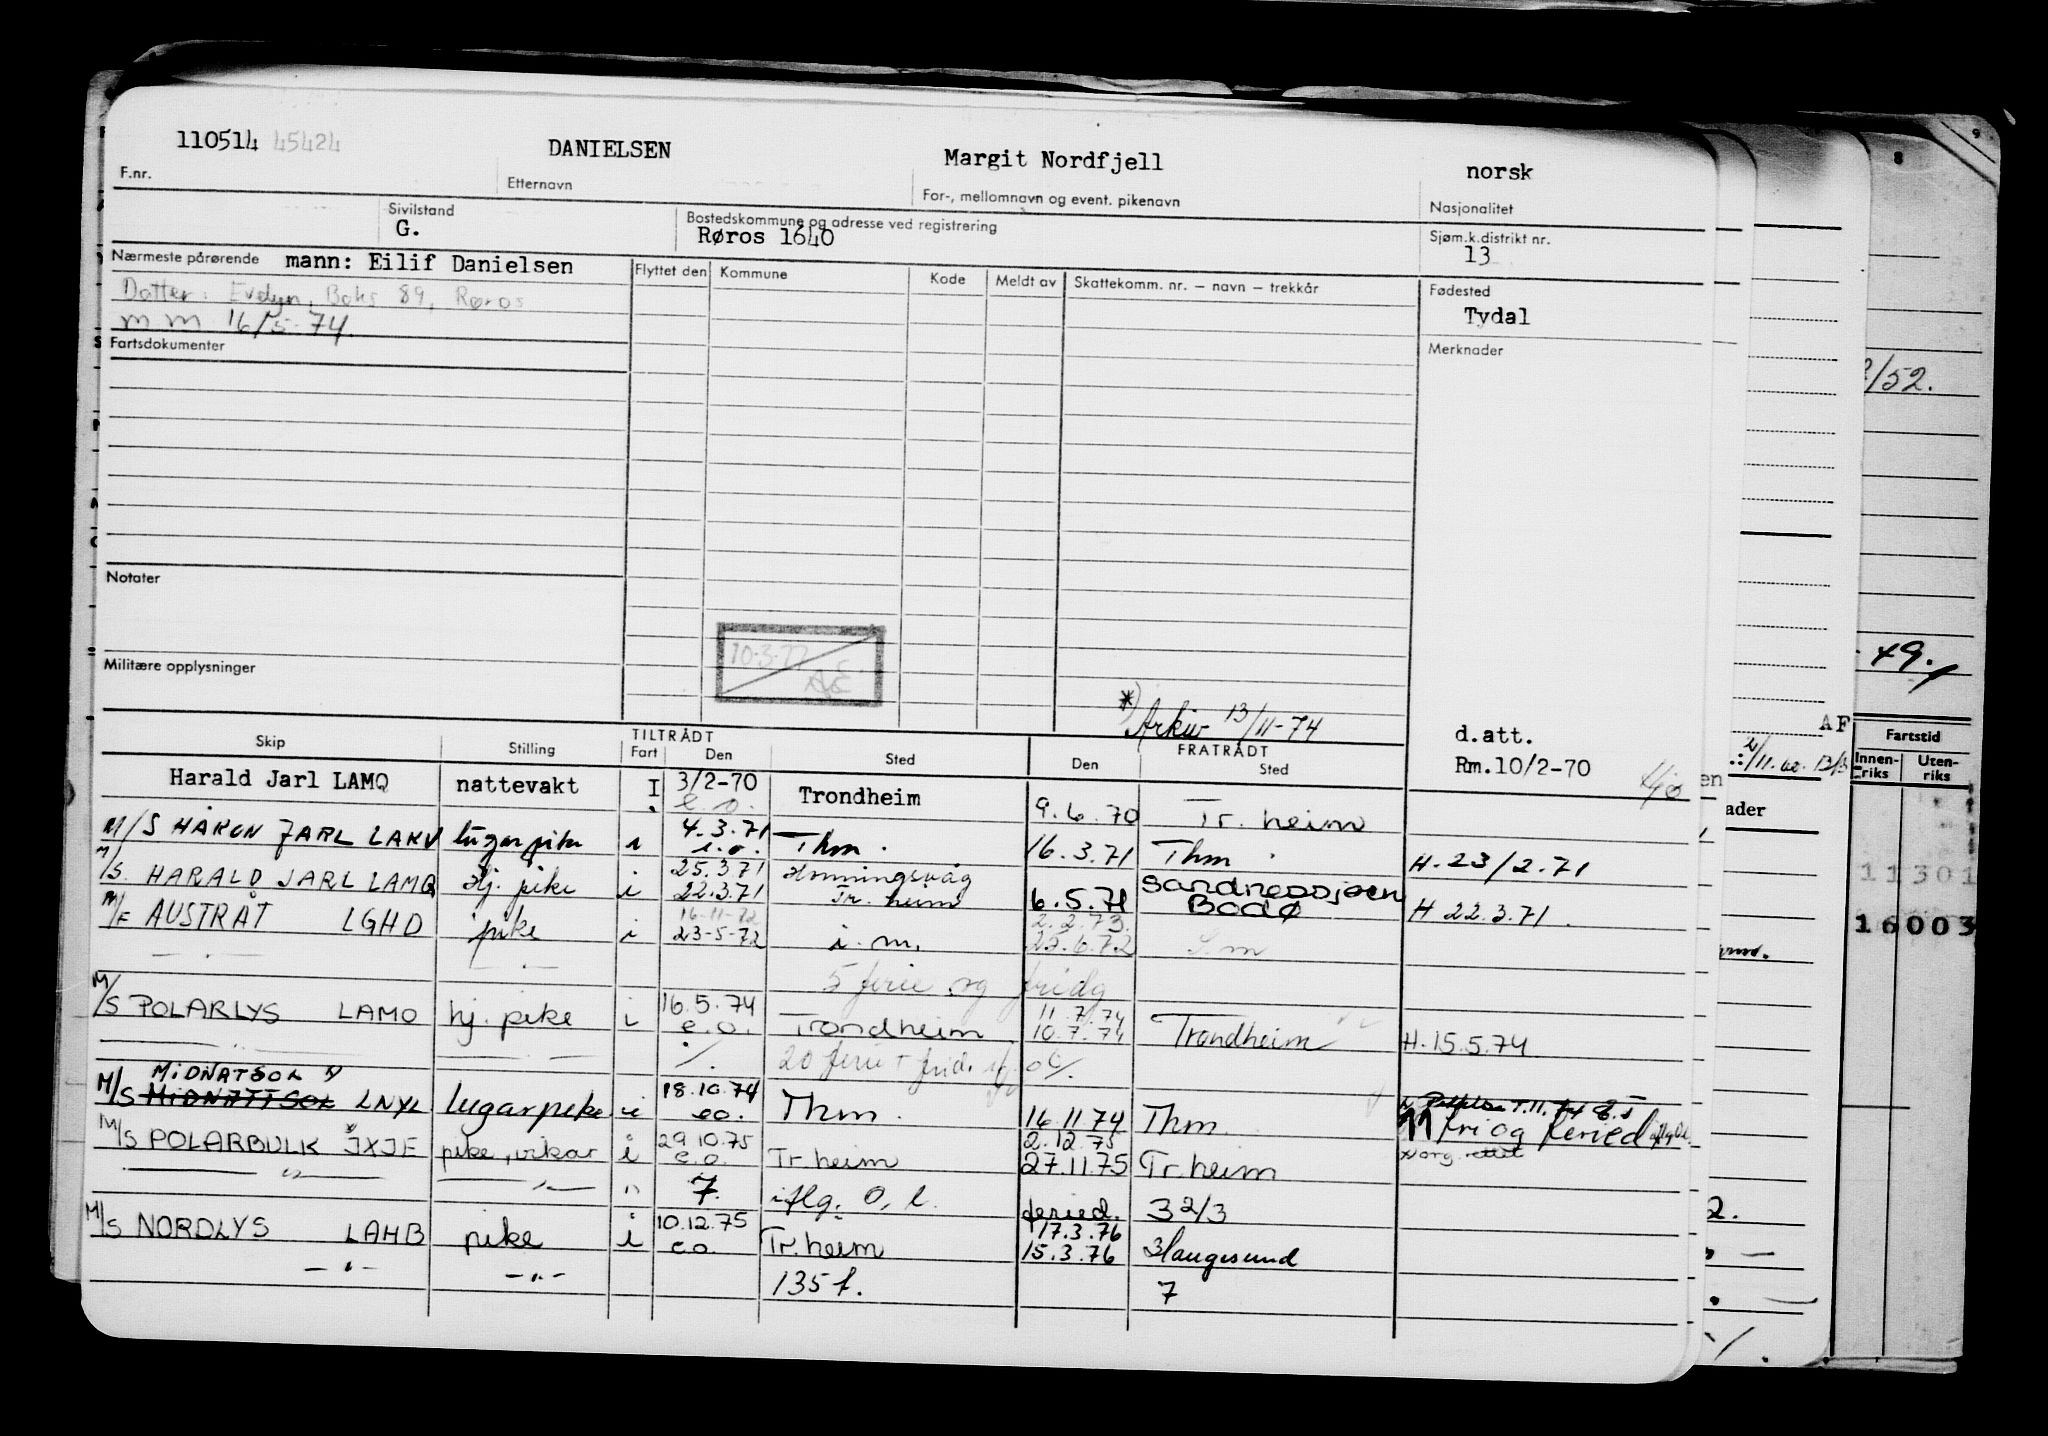 110514 45424 DANIELSEN Margit Nordfjell norsk
F.nr. Etternavn For-, mellomnavn og event. pikenavn Nasjonalitet
Sivilstand Bostedskommune og adresse ved registrering Sjøm.k.distrikt nr.
G. Røros 1640 13
Nærmeste pårørende mann: Eilif Danielsen Flyttet den Kommune Kode Meldt av Skattekomm. nr. – navn – trekkår Fødested
Datter: Evelyn, Boks 89, Røros Tydal
m m 16/5-74.
Fartsdokumenter Merknader
Notater
10.3.77
Militære opplysninger
*) Arkiv 13/11-74
TILTRÅDT FRATRÅDT d.att.
Skip Stilling Fart Den Sted Den Sted Rm.10/2-70
Harald Jarl LAMQ nattevakt I 3/2-70 Trondheim 9.6.70 Tr. heim
e.o.
M/S HÅKON JARL LAKV lugarpike i 4.3.71 Thm. 16.3.71 Thm. H. 23/2.71
M/S. HARALD JARL LAMQ hj. pike i 25.3.71 Honningsvåg Sandnessjøen
22.3.71 Tr. heim 6.5.71 Bodø H 22.3.71.
M/F AUSTRÅT LGHD pike i 16-11-72 2.2.73.
23-5-72 i.m. 22.6.72
5 ferie og fridg
M/S POLARLYS LAMO hj. pike i 16.5.74 11.7.74
e.o. Trondheim 10.7.74 Trondheim H.15.5.74
20 ferie + frid.
MIDNATSOL
M/S MIDNATTSOL LNYL lugarpike i 18.10.74
e.o. Thm. 16.11.74 Thm. 11 fri og feried
M/S POLARBULK JXJE pike, vikar i 29.10.75 2.12.75
e.o. Tr.heim 27.11.75 Tr.heim
7. iflg. O.l. feried. 3 2/3
M/S NORDLYS LAHB pike i 10.12.75 17.3.76
e.o. Tr.heim 15.3.76 Haugesund
135 f. 7
8
9
/52.
49.
AF
Fartstid
Innenriks Utenriks
11301
16003